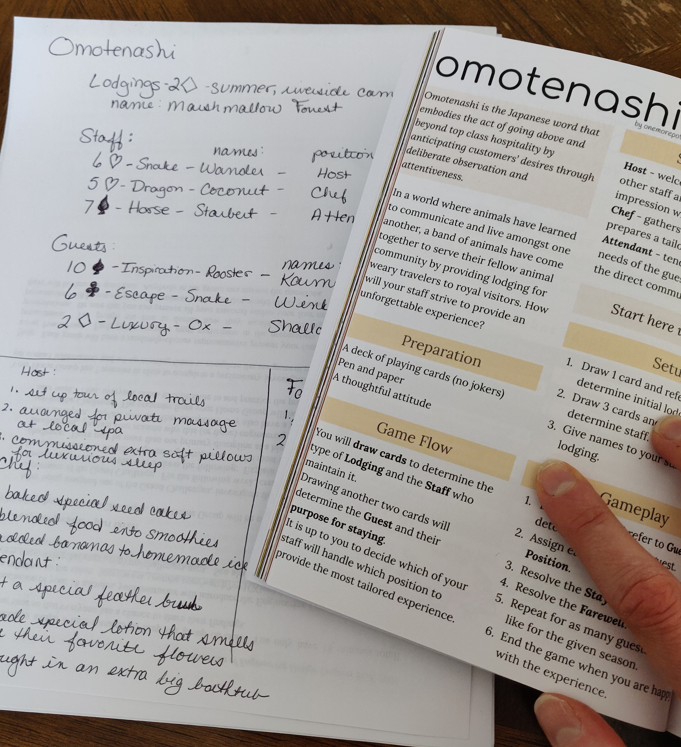 Omotenashi
Lodgings - 2◇ - summer, riverside cam
name: Marshmallow Forest
Staff:
names: position
6 ♡ - Snake - Wander - Host
5 ♡ - Dragon - Coconut - Chef
7 ♠ - Horse - Starburst - Atten
Guests:
names:
10 ♠ - Inspiration - Rooster -
6 ♣ - Escape - Snake - Wink
2 ◇ - Luxury - Ox - Shallo
Host:
1. set up tour of local trails
2. arranged for private massage
at local spa
3. commissioned extra soft pillows
for luxurious sleep
Chef:
baked special seed cakes
blended food into smoothies
added bananas to homemade ice
endant:
t a special feather brush
ade special lotion that smells
their favorite flowers
ught in an extra big bathtub
Fa
1.
2
omotenashi
Omotenashi is the Japanese word that
embodies the act of going above and
beyond top class hospitality by
anticipating customers' desires through
deliberate observation and
attentiveness.
In a world where animals have learned
to communicate and live amongst one
another, a band of animals have come
together to serve their fellow animal
community by providing lodging for
weary travelers to royal visitors. How
will your staff strive to provide an
unforgettable experience?
Preparation
A deck of playing cards (no jokers)
Pen and paper
A thoughtful attitude
Game Flow
You will draw cards to determine the
type of Lodging and the Staff who
maintain it.
Drawing another two cards will
determine the Guest and their
purpose for staying.
It is up to you to decide which of your
staff will handle which position to
provide the most tailored experience.
S
Host - welc
other staff a
impression w
Chef - gathers
prepares a tailo
Attendant - ten
needs of the gues
the direct commu
Start here t
Setu
1. Draw 1 card and refe
determine initial lod
2. Draw 3 cards and
determine staff.
3. Give names to your
lodging.
Gameplay
1.
dete refer to Gue
est.
2. Assign
Position.
3. Resolve the Stay
4. Resolve the Farewell.
5. Repeat for as many guest
like for the given season.
6. End the game when you are happ
with the experience.